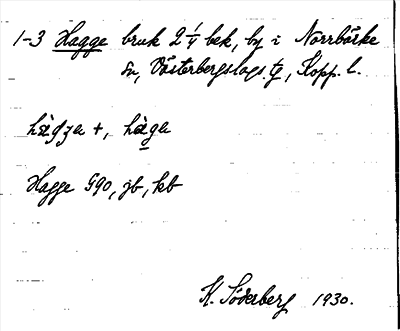 1-3 Hagge bruk 2 1/4 bek, by i Norrbärke
sn, Västerbergslags tg, Kopp. l.
hàgga +, hàga
Hagge G90, jb, kb
K. Söderberg 1930.